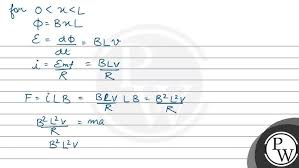 for 0 < x < L
Φ = BxL
ε = dΦ/dt = BLv
i = Emf/R = BLv/R
F = iLB = BLv/R LB = B²L²v/R
B²L²v/R = ma
B²L²v
PW